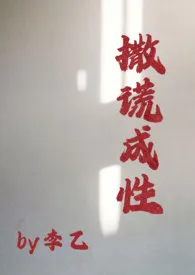 撒谎成性
by李乙